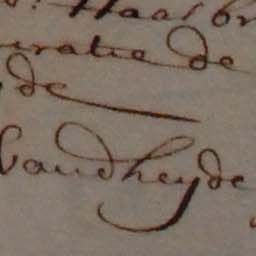 Haesbr
uratie de
de
Vandheyde